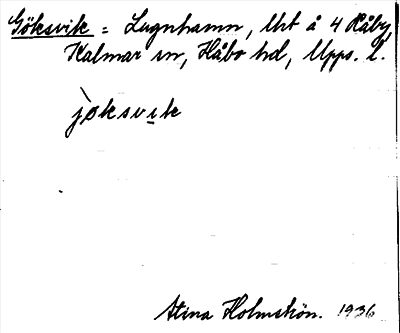 Göksvik = Lugnhamn, Urt å 4 Råby,
Kalmar sn, Håbo hd, Upps. l.
jøksvik
Stina Holmström. 1936